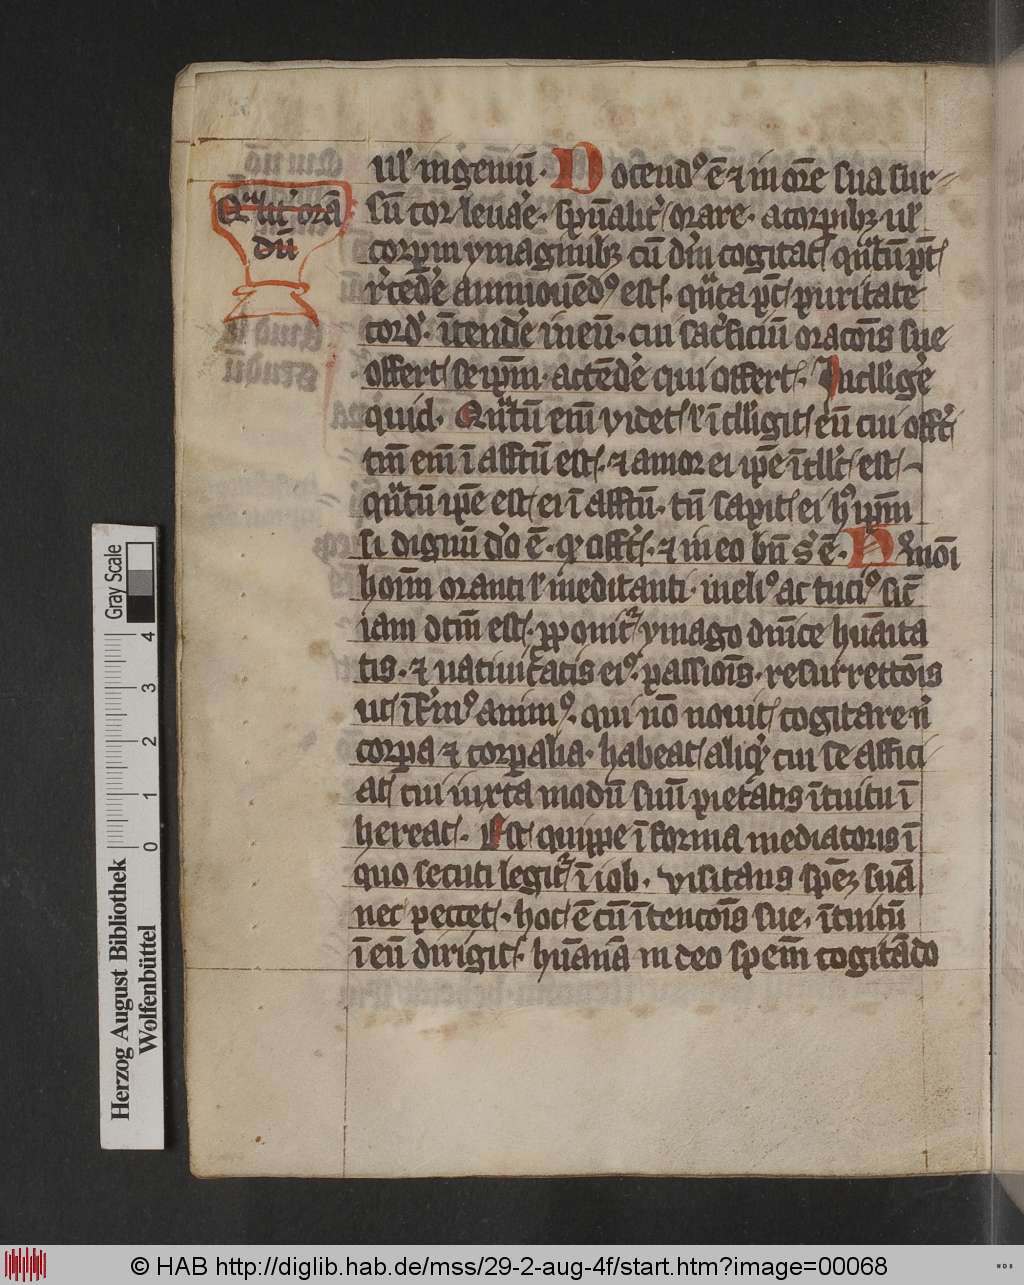 Qualit' orā
dū
ul' ingeniū. Docend9 ē ⁊ in orōe sua sur
sū cor levare. sp̄ualit' orare. a corp̄ibꝫ ul'
corpeis ymaginibꝫ cū dm̄ cogitat qntū pōt
rcedere ammonēd9 est. qnta pōt puritate
cord'. ītendere in eū. cui sacficiū oracōis sue
offert. se ip̄m. actēdere qui offert. Intellig'e
quid. Quntū em̄ videt l' ītelligit eū cui offt
tm̄ em̄ ī affcū est. ⁊ amor ei ip̄e ītllcs est
quntū ip̄e est ei ī affcū. tn̄ sapit ei h' ip̄m
si dignū dō ē. qd offt. ⁊ in eo bn̄ s' ē.
hōim oranti l' meditanti. meli9 ac tuci9 sic
iam dcm̄ est. pponit ymago dnīce hūaita
tis. ⁊ nativitatis ei9. passiōis. resurrectōis
ut īfirm9 anim9. qui nō novit cogitare n'
corpa ⁊ corpalia. habeat aliqd cui se affici
at cui iuxta modū suū pietatis ītuitu ī
hereat. Est quippe ī forma mediatoris ī
quo sicuti legit' ī iob. visitans spēꝫ suā
nec peccet. hoc ē cū ītencōis sue. ītuitū
ī eū dirigit. hūanā in deo spēm cogitādo
Herzog August Bibliothek
Wolfenbüttel
Gray Scale
0 1 2 3 4
© HAB http://diglib.hab.de/mss/29-2-aug-4f/start.htm?image=00068